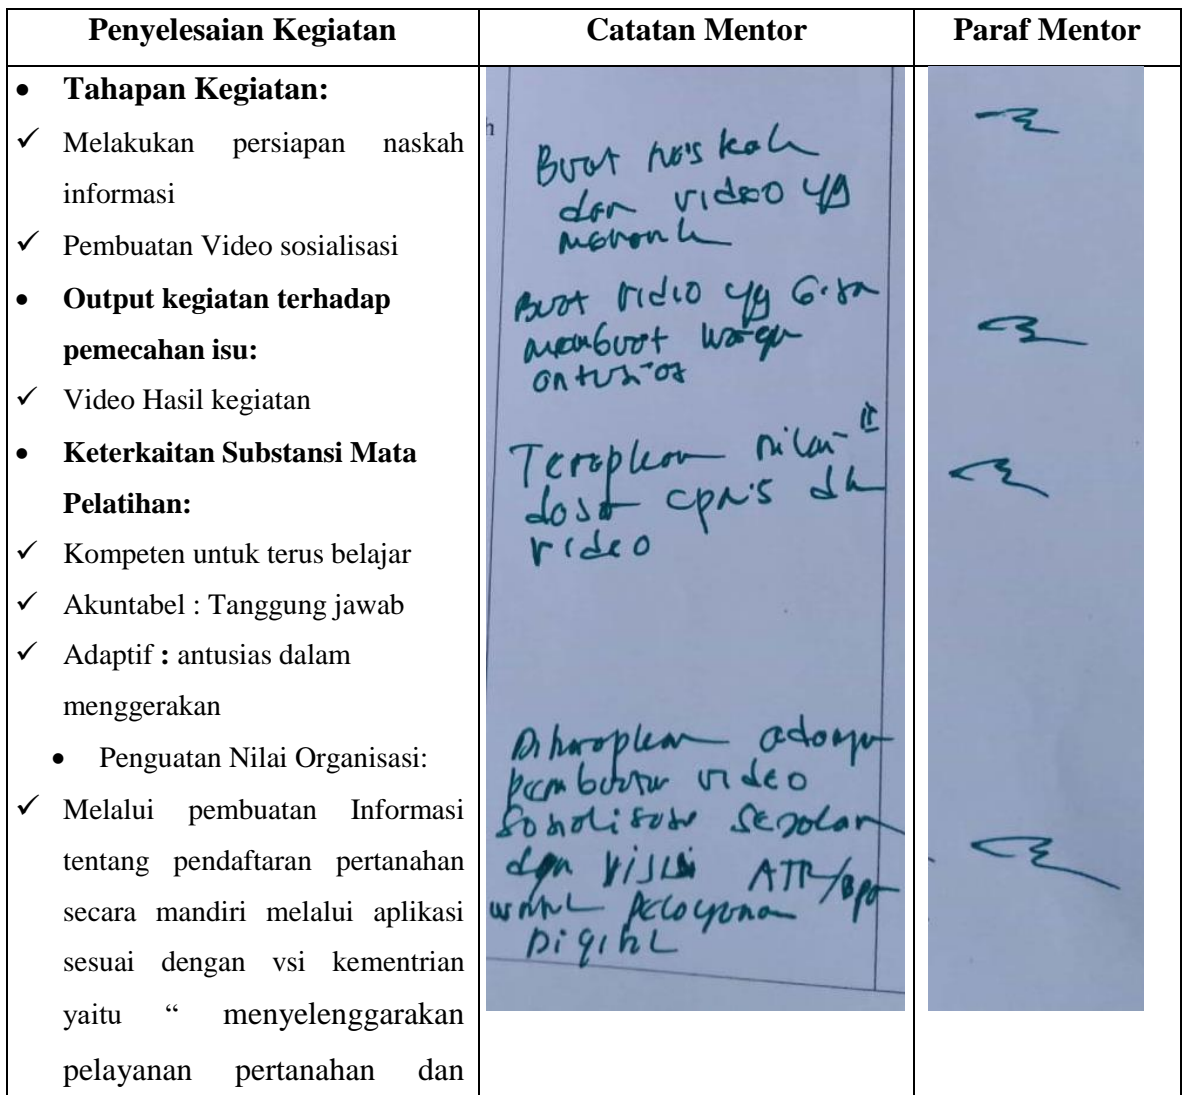 Penyelesaian Kegiatan
Catatan Mentor
Paraf Mentor
• Tahapan Kegiatan:
✓ Melakukan persiapan naskah
informasi
✓ Pembuatan Video sosialisasi
• Output kegiatan terhadap
pemecahan isu:
✓ Video Hasil kegiatan
• Keterkaitan Substansi Mata
Pelatihan:
✓ Kompeten untuk terus belajar
✓ Akuntabel : Tanggung jawab
✓ Adaptif : antusias dalam
menggerakan
• Penguatan Nilai Organisasi:
✓ Melalui pembuatan Informasi
tentang pendaftaran pertanahan
secara mandiri melalui aplikasi
sesuai dengan vsi kementrian
yaitu “ menyelenggarakan
pelayanan pertanahan dan
h
Buat naskah
dan video yg
menarik
Buat video yg bisa
membuat warga
antusias
Terapkan nilai-
dasar cpns dlm
video
Diharapkan adanya
pembuatan video
sosialisasi sejalan
dgn visi ATR/Bpn
untuk pelayanan
Digital